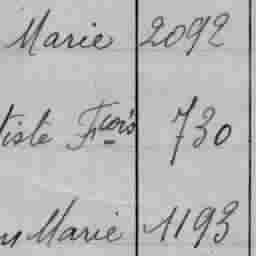 Marie 2092
tiste Fçois 730
Marie 1193